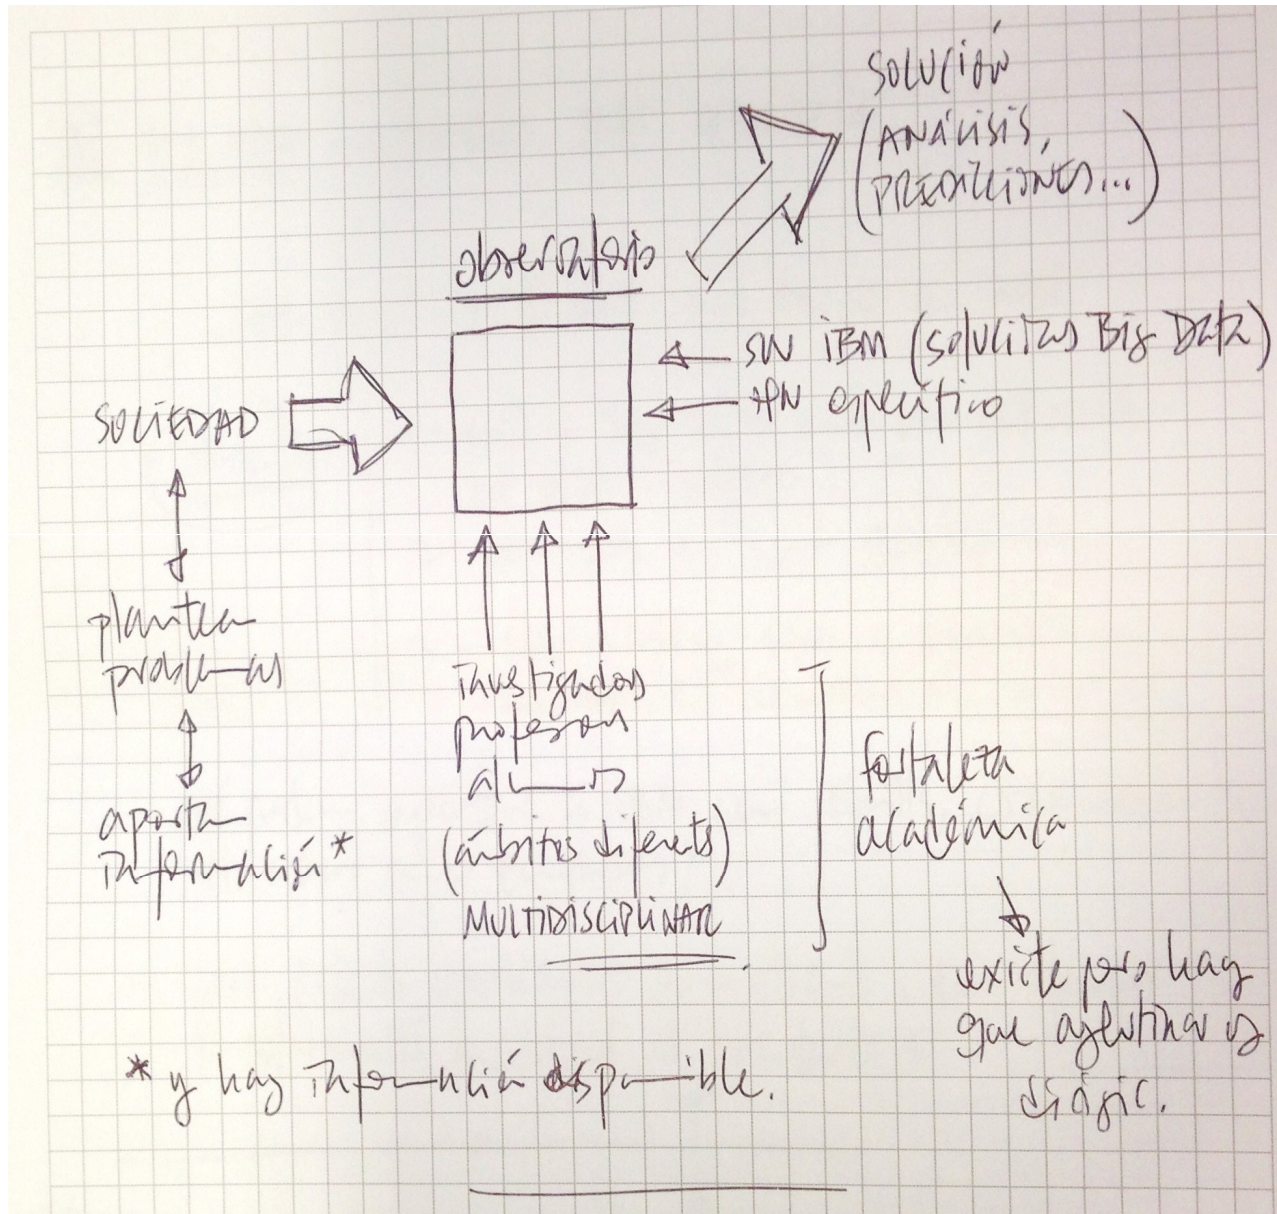 SOLUCIÓN
(ANÁLISIS,
PREDICCIONES...)
observatorio
SW IBM (soluciones Big Data)
HW específico
SOCIEDAD
plantea
problemas
aporta
información*
investigadores
profesores
alumnos
(ámbitos diferentes)
MULTIDISCIPLINAR
fortaleza
académica
existe pero hay
que aglutinar y
* y hay información disponible.